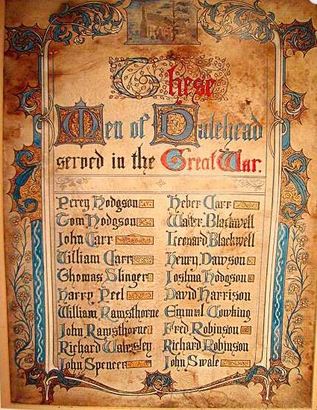 These
Men of Dalehead
served in the Great War.
Percy Hodgson
Tom Hodgson
John Carr
William Carr
Thomas Slinger
Harry Peel
William Ramsthorne
John Ramsthorne
Richard Walmsley
John Spencer
Heber Carr
Walter Blackwell
Leonard Blackwell
Henry Dawson
Joshua Hodgson
David Harrison
Cowking
Fred Robinson
Richard Robinson
John Swale